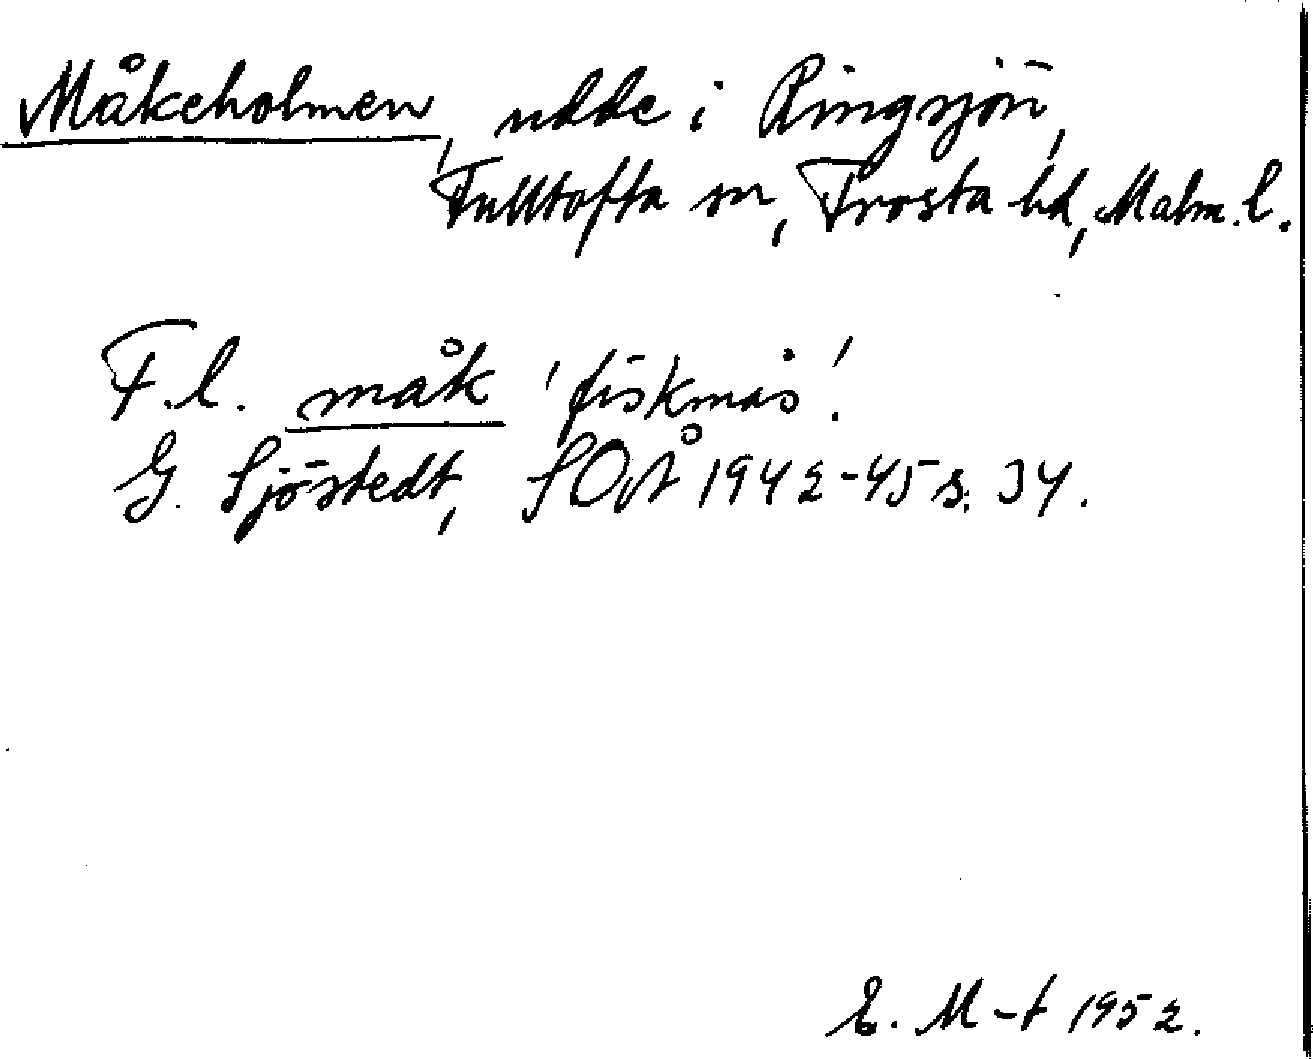 Måkeholmen, udde i Ringsjön,
Fulltofta sn, Frosta hd, Malm. l.
F.l. måk 'fiskmås'.
G. Sjöstedt, SOÅ 1942-45 s. 34.
E. M-t 1952.